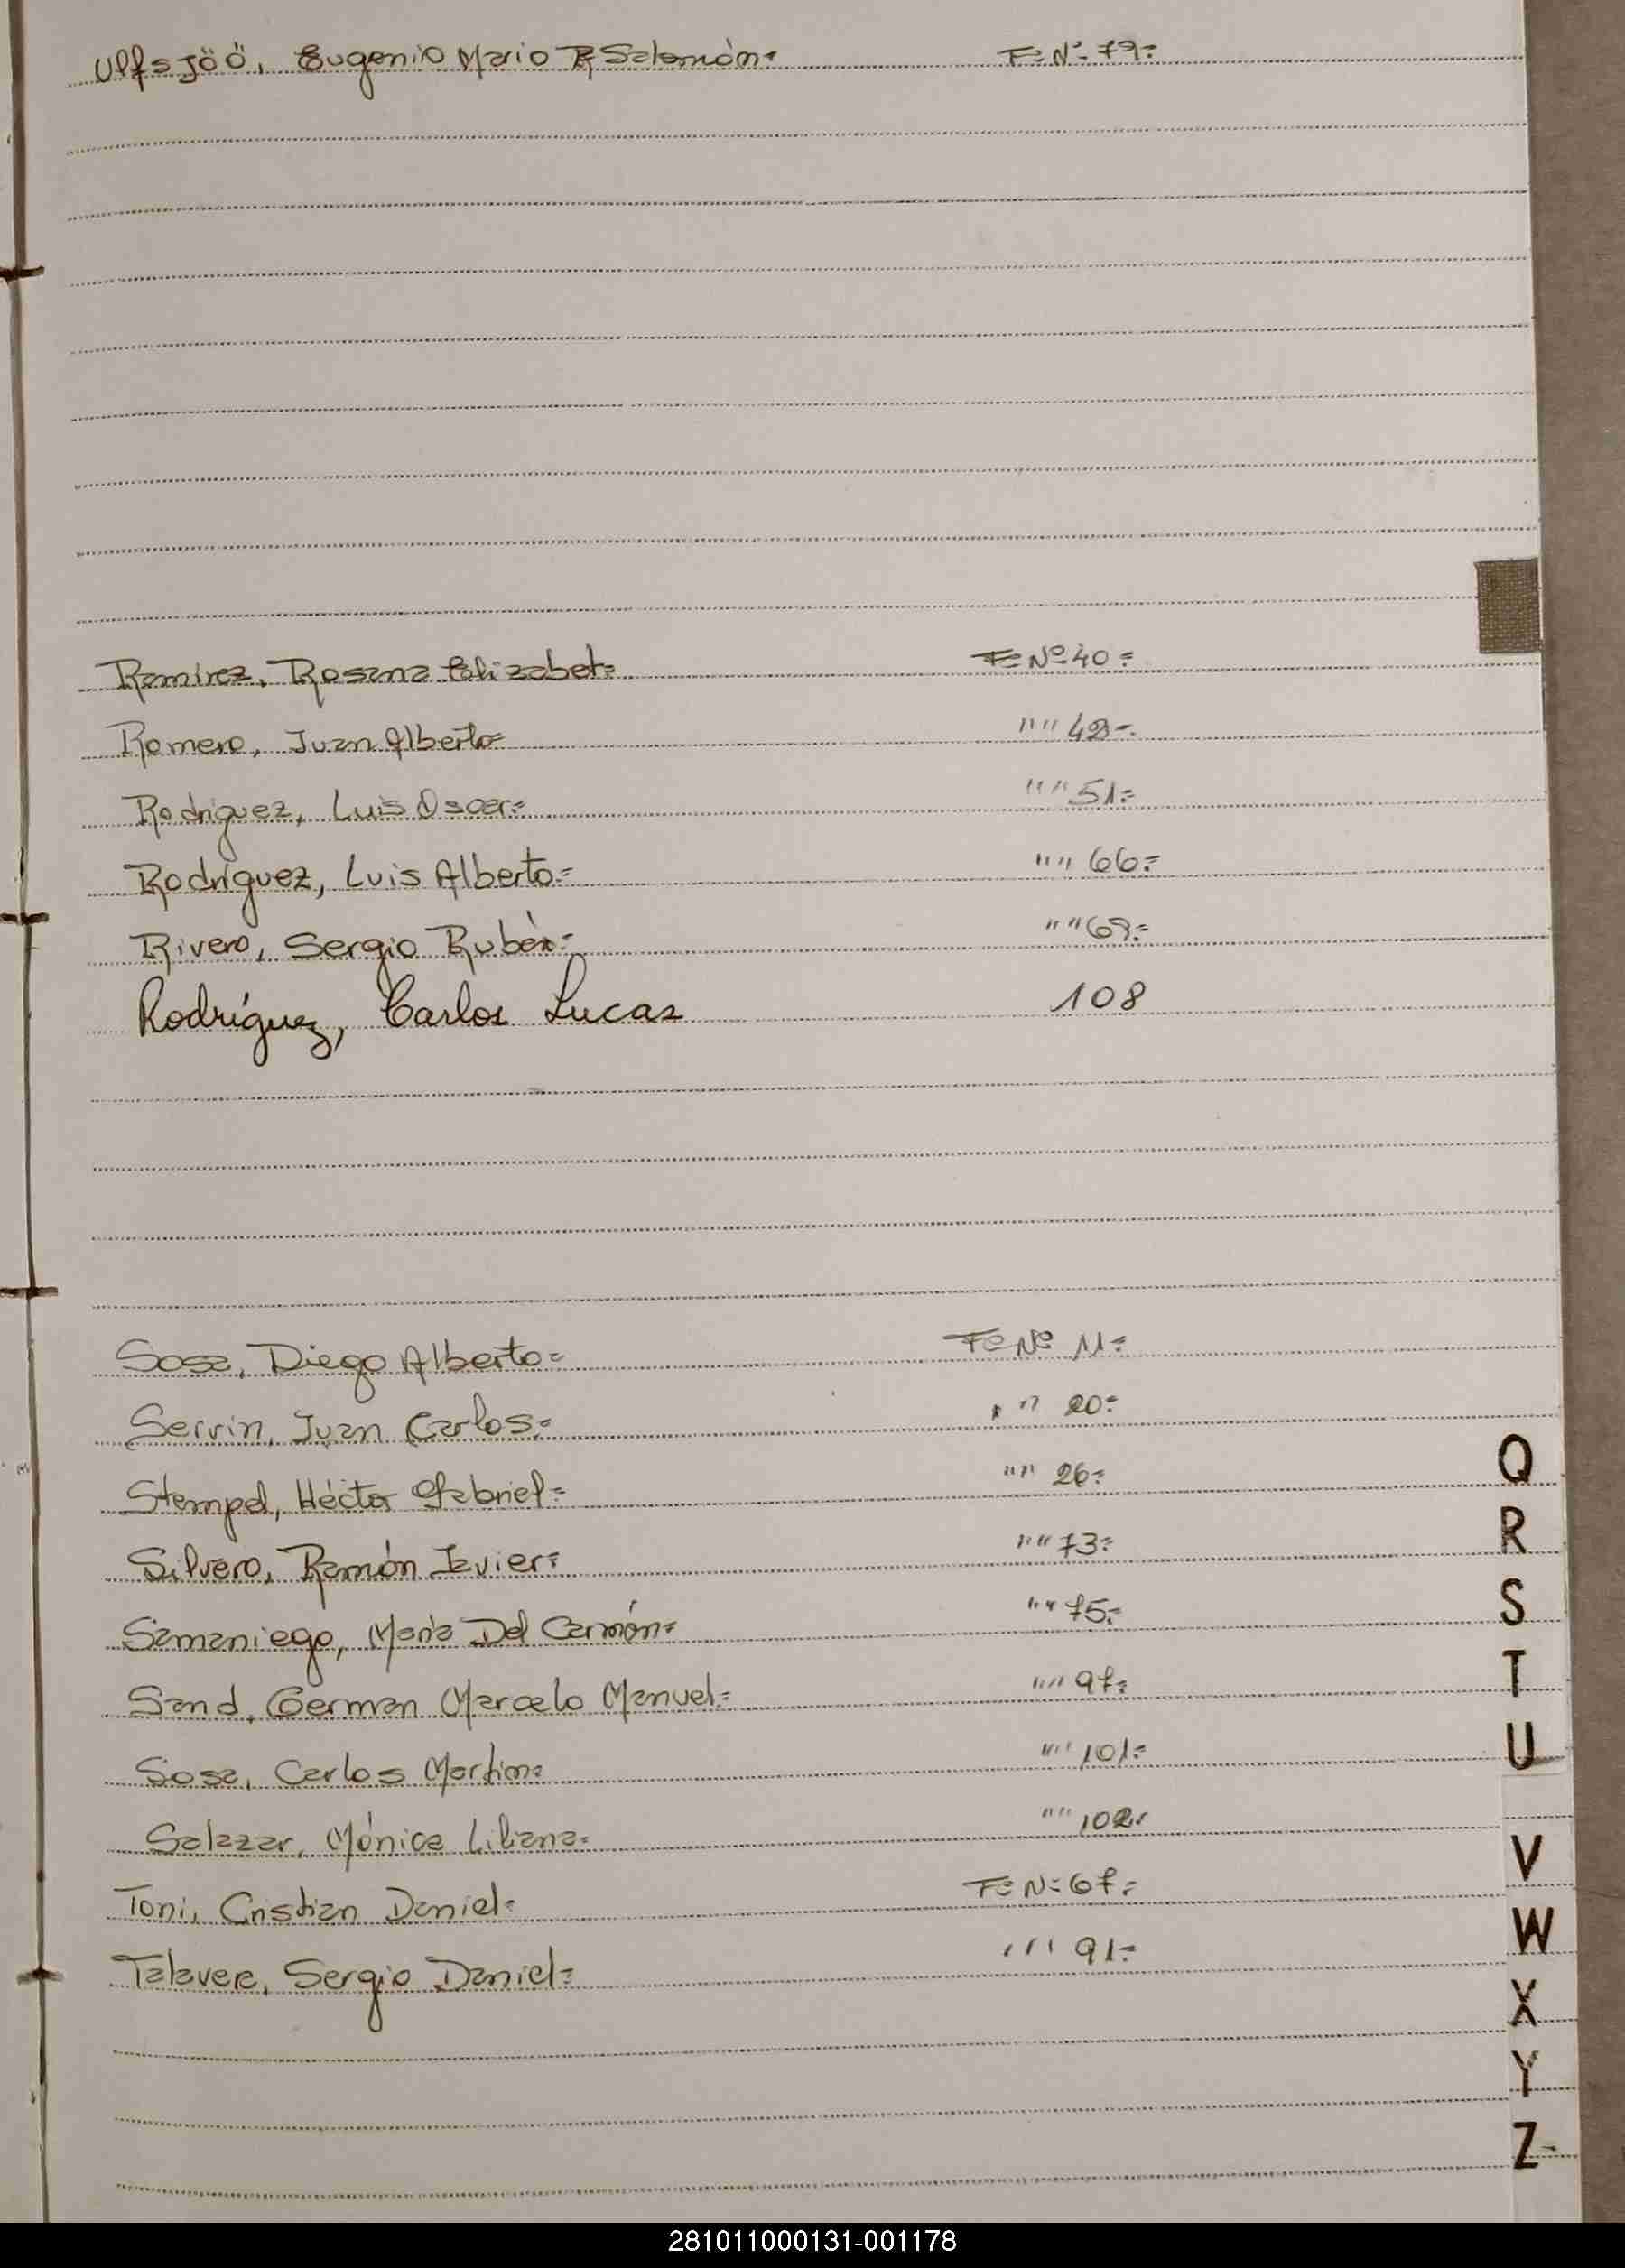 Ulfsjöö, Eugenio Mario R Salomón.= Fº Nº 79.=
Ramirez, Rosana Elizabet.= Fº Nº 40.=
Romero, Juan Alberto.= " " 48.-
Rodriguez, Luis Oscar.= " " 51.=
Rodríguez, Luis Alberto.= " " 66.=
Rivero, Sergio Rubén.= " " 69.=
Rodríguez, Carlos Lucas 108
Sosa, Diego Alberto.= Fº Nº 11.=
Servin, Juan Carlos.= " " 20.=
Stempel, Héctor Gabriel.= " " 26.=
Silvero, Ramón Javier.= " " 73.=
Samaniego, María Del Carmén.= " " 75.=
Sand, German Marcelo Manuel.= " " 97.=
Sosa, Carlos Martin.= " " 101.=
Salazar, Mónica Liliana.= " " 102.=
Toni, Cristian Daniel.= Fº Nº 67.=
Talavera, Sergio Daniel.= " " 91.=
Q
R
S
T
U
V
W
X
Y
Z
281011000131-001178